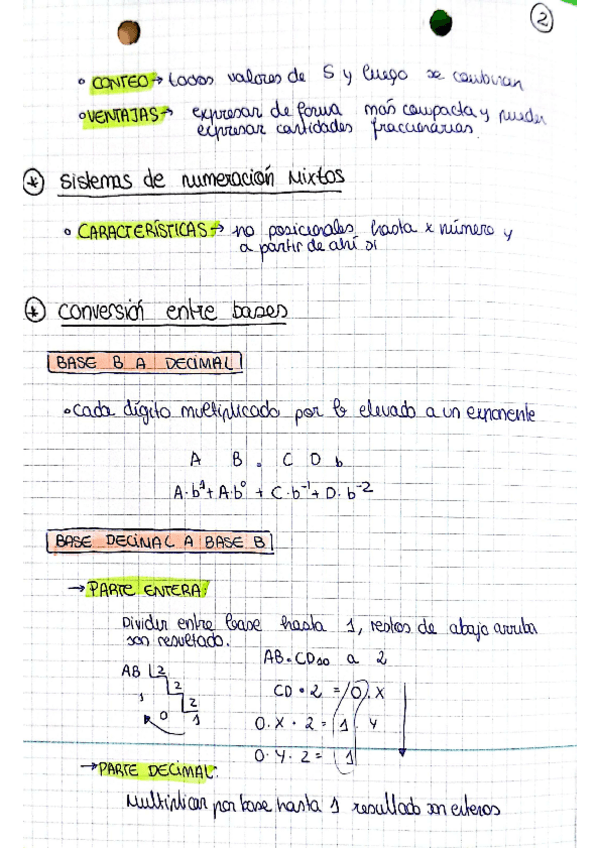 2
• CONTEO → todos valores de S y luego se combinan
• VENTAJAS → expresar de forma más compacta y pueden
expresar cantidades fraccionarias.
* Sistemas de numeración Mixtos
• CARACTERÍSTICAS → no posicionales hasta x número y
a partir de ahí sí
* Conversión entre bases
BASE B A DECIMAL
• Cada dígito multiplicado por b elevado a un exponente
A B . C D b
A·b¹ + A·b⁰ + C·b⁻¹ + D·b⁻²
BASE DECIMAL A BASE B
→ PARTE ENTERA:
Dividir entre base hasta 1, restos de abajo arriba
son resultado.
AB.CD₁₀ a 2
AB 2
1 2
0 2
1
CD · 2 = 0.X
0.X · 2 = 1 Y
0.Y · 2 = 1
→ PARTE DECIMAL:
Multiplicar por base hasta 1 resultado son enteros